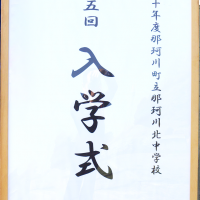 十年度那珂川町立那珂川北中学校
五回
入学式